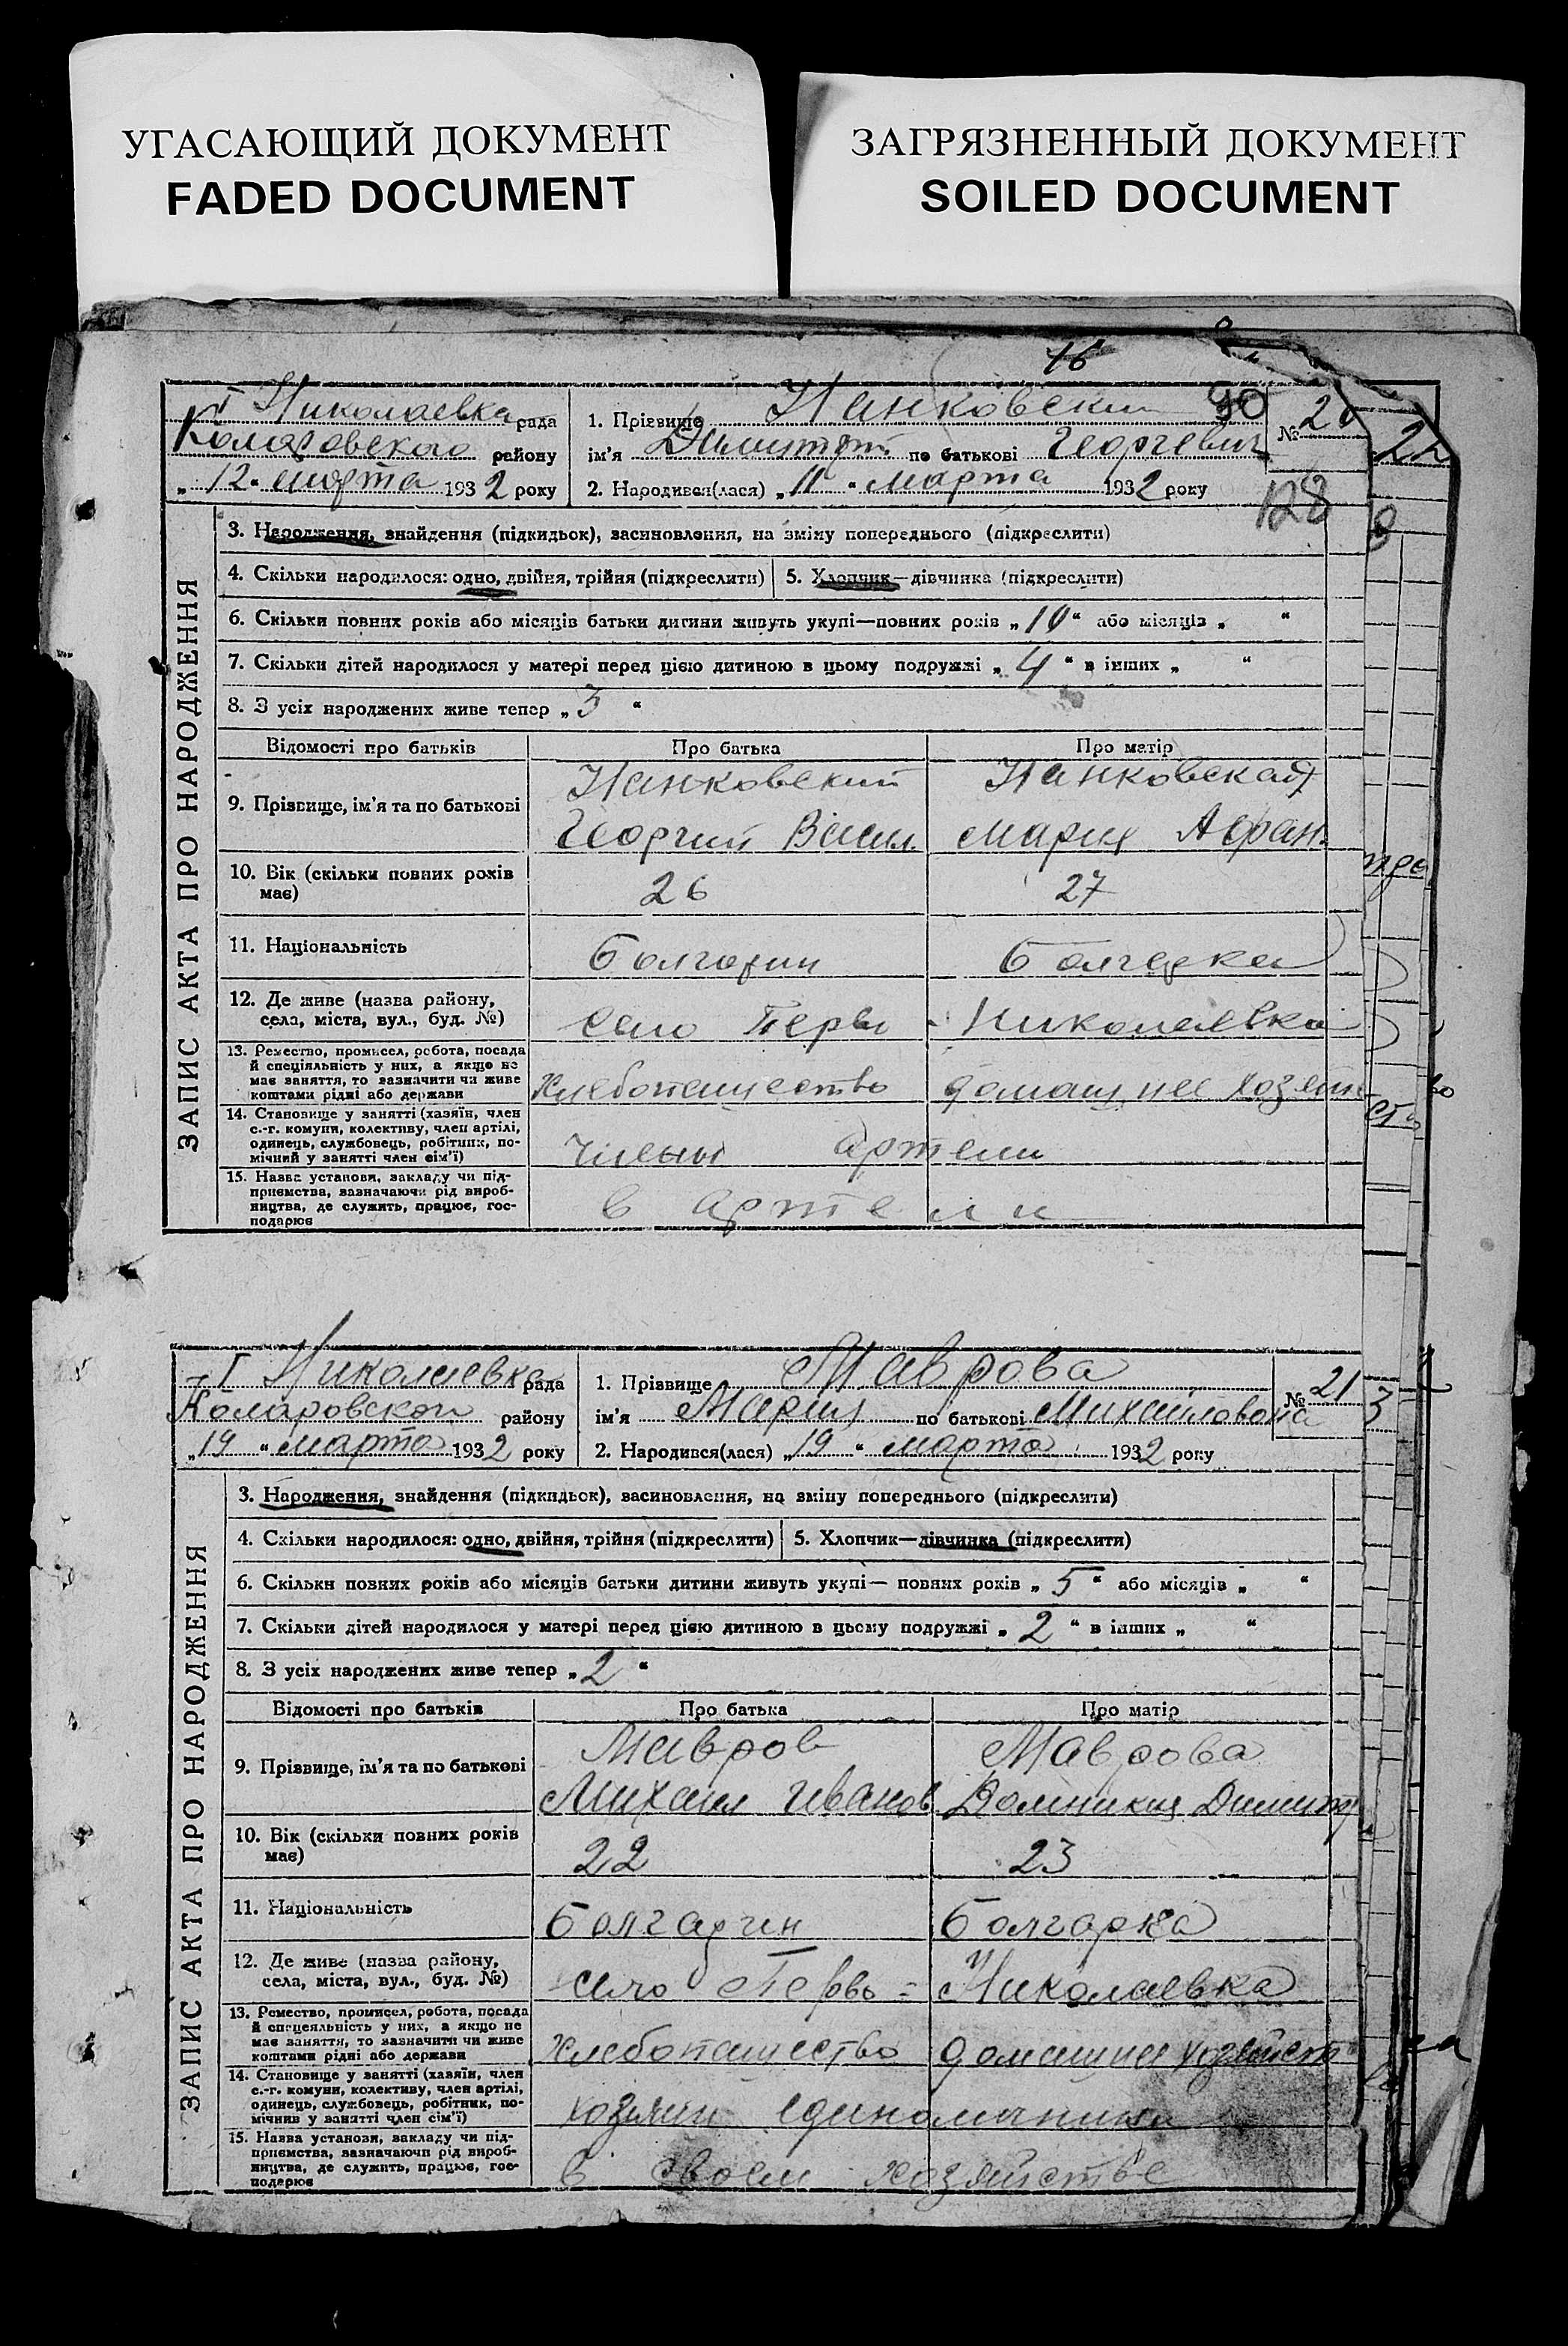 УГАСАЮЩИЙ ДОКУМЕНТ
FADED DOCUMENT
ЗАГРЯЗНЕННЫЙ ДОКУМЕНТ
SOILED DOCUMENT
16
I Николаевка рада
Коларовского району
„12“ марта 1932 року
1. Прізвище Нанковский 90
ім'я Димитрий по батькові Георгевич
2. Народився(лася) „11“ марта 1932 року
№ 20
128
ЗАПИС АКТА ПРО НАРОДЖЕННЯ
3. Народження, знайдення (підкидьок), засиновлення, на зміну попереднього (підкреслити)
4. Скільки народилося: одно, двійня, трійня (підкреслити) 5. Хлопчик—дівчинка (підкреслити)
6. Скільки повних років або місяців батьки дитини живуть укупі—повних років „10“ або місяців „ “
7. Скільки дітей народилося у матері перед цією дитиною в цьому подружжі „4“ в інших „ “
8. З усіх народжених живе тепер „3“
Відомості про батьків Про батька Про матір
9. Прізвище, ім'я та по батькові
Нанковский Нанковская
Георгий Васил. Мария Афан.
10. Вік (скільки повних років має) 26 27
11. Національність Болгарин Болгарка
12. Де живе (назва району,
села, міста, вул., буд. №) село Перво - Николаевка
13. Ремество, промисел, робота, посада
й спеціяльність у них, а якщо не
має заняття, то зазначити чи живе
коштами рідні або держави
Хлебопашество домашнее хозяйс
14. Становище у занятті (хазяїн, член
с.-г. комуни, колективу, член артілі,
одинець, службовець, робітник, по-
мічний у занятті член сім'ї)
члены артели
15. Назва установи, закладу чи під-
приємства, зазначаючи рід вироб-
ництва, де служить, працює, гос-
подарює
в артели
I Николаевка рада
Коларовского району
„19“ марта 1932 року
1. Прізвище Маврова
ім'я Мария по батькові Михайловона
2. Народився(лася) „19“ марта 1932 року
№ 21
ЗАПИС АКТА ПРО НАРОДЖЕННЯ
3. Народження, знайдення (підкидьок), засиновлення, на зміну попереднього (підкреслити)
4. Скільки народилося: одно, двійня, трійня (підкреслити) 5. Хлопчик—дівчинка (підкреслити)
6. Скільки повних років або місяців батьки дитини живуть укупі— повних років „5“ або місяців „ “
7. Скільки дітей народилося у матері перед цією дитиною в цьому подружжі „2“ в інших „ “
8. З усіх народжених живе тепер „2“
Відомості про батьків Про батька Про матір
9. Прізвище, ім'я та по батькові
Мавров Маврова
Михаил Иванов Домникия Димитр
10. Вік (скільки повних років має) 22 23
11. Національність Болгарин Болгарка
12. Де живе (назва району,
села, міста, вул., буд. №) село Перво - Николаевка
13. Ремество, промисел, робота, посада
й спецеяльність у них, а якщо не
має заняття, то зазначити чи живе
коштами рідні або держави
хлебопашество домашнее хозяйст
14. Становище у занятті (хазяїн, член
с.-г. комуни, колективу, член артілі,
одинець, службовець, робітник, по-
мічний у занятті член сім'ї)
хозяин единоличника
15. Назва установи, закладу чи під-
приємства, зазначаючи рід вироб-
ництва, де служить, працює, гос-
подарює
в своем хозяйстве